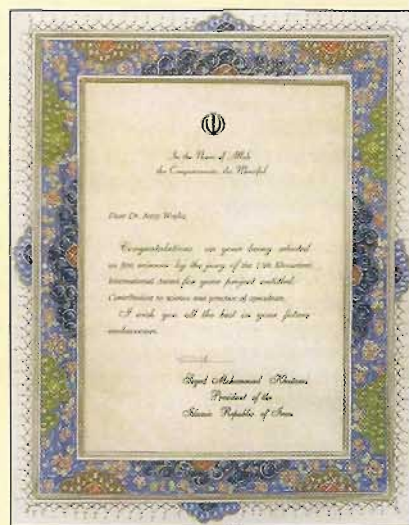 In the Name of Allah
the Compassionate, the Merciful
Dear Dr.
Congratulations on your being selected
as first winner by the jury of the 15th Khwarizmi
International Award for your project entitled:
Contribution to science and practice of
I wish you all the best in your future
endeavours.
Seyed Mohammad Khatami
President of the
Islamic Republic of Iran